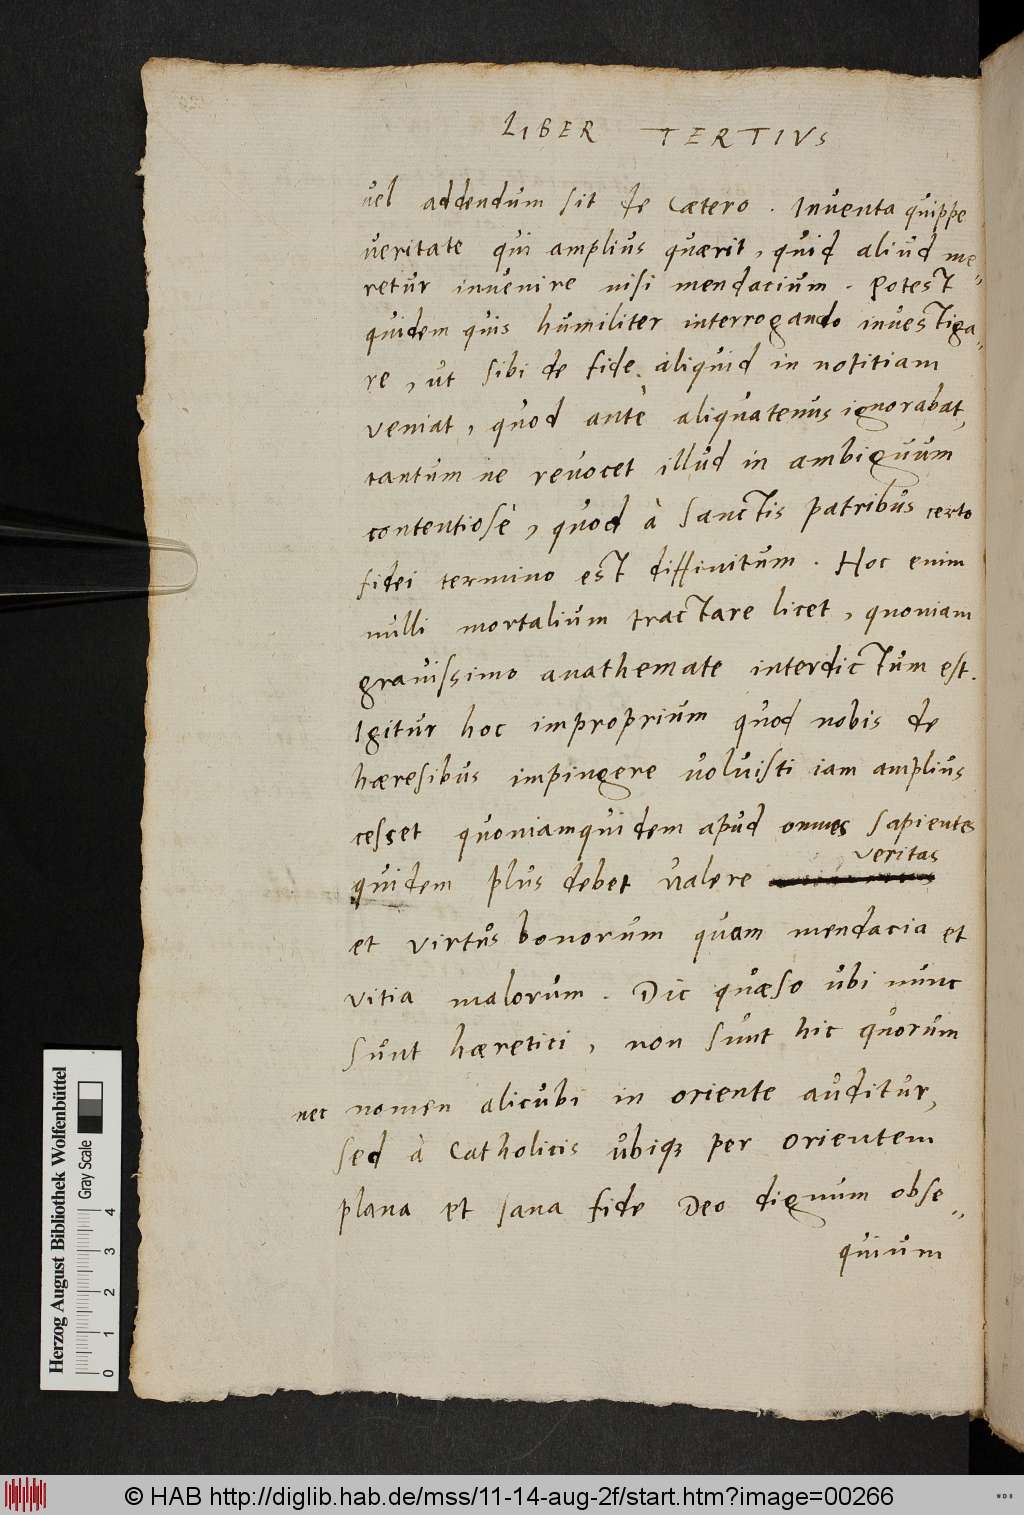 LIBER TERTIVS
vel addendum sit de cætero . Inventa quippe
veritate qui amplius quærit, quid aliud me„
retur invenire nisi mendacium . Potest
quidem quis humiliter interrogando investiga„
re, ut sibi de fide aliquid in notitiam
veniat, quod antè aliquatenus ignorabat,
tantum ne revocet illud in ambiguum
contentiosè, quod à sanctis patribus certo
fidei termino est diffinitum . Hoc enim
nulli mortalium tractare licet, quoniam
gravissimo anathemate interdictum est.
Igitur hoc improprium quod nobis de
hæresibus impingere voluisti iam amplius
cesset quoniamquidem apud omnes sapientes
veritas
quidem plus debet valere
et virtus bonorum quam mendacia et
vitia malorum . Dic quæso ubi nunc
sunt hæretici, non sunt hic quorum
nec nomen alicubi in oriente auditur,
sed à Catholicis ubiq; per orientem
plana et sana fide Deo dignum obse„
quium
Herzog August Bibliothek Wolfenbüttel
Gray Scale
0 1 2 3 4
© HAB http://diglib.hab.de/mss/11-14-aug-2f/start.htm?image=00266